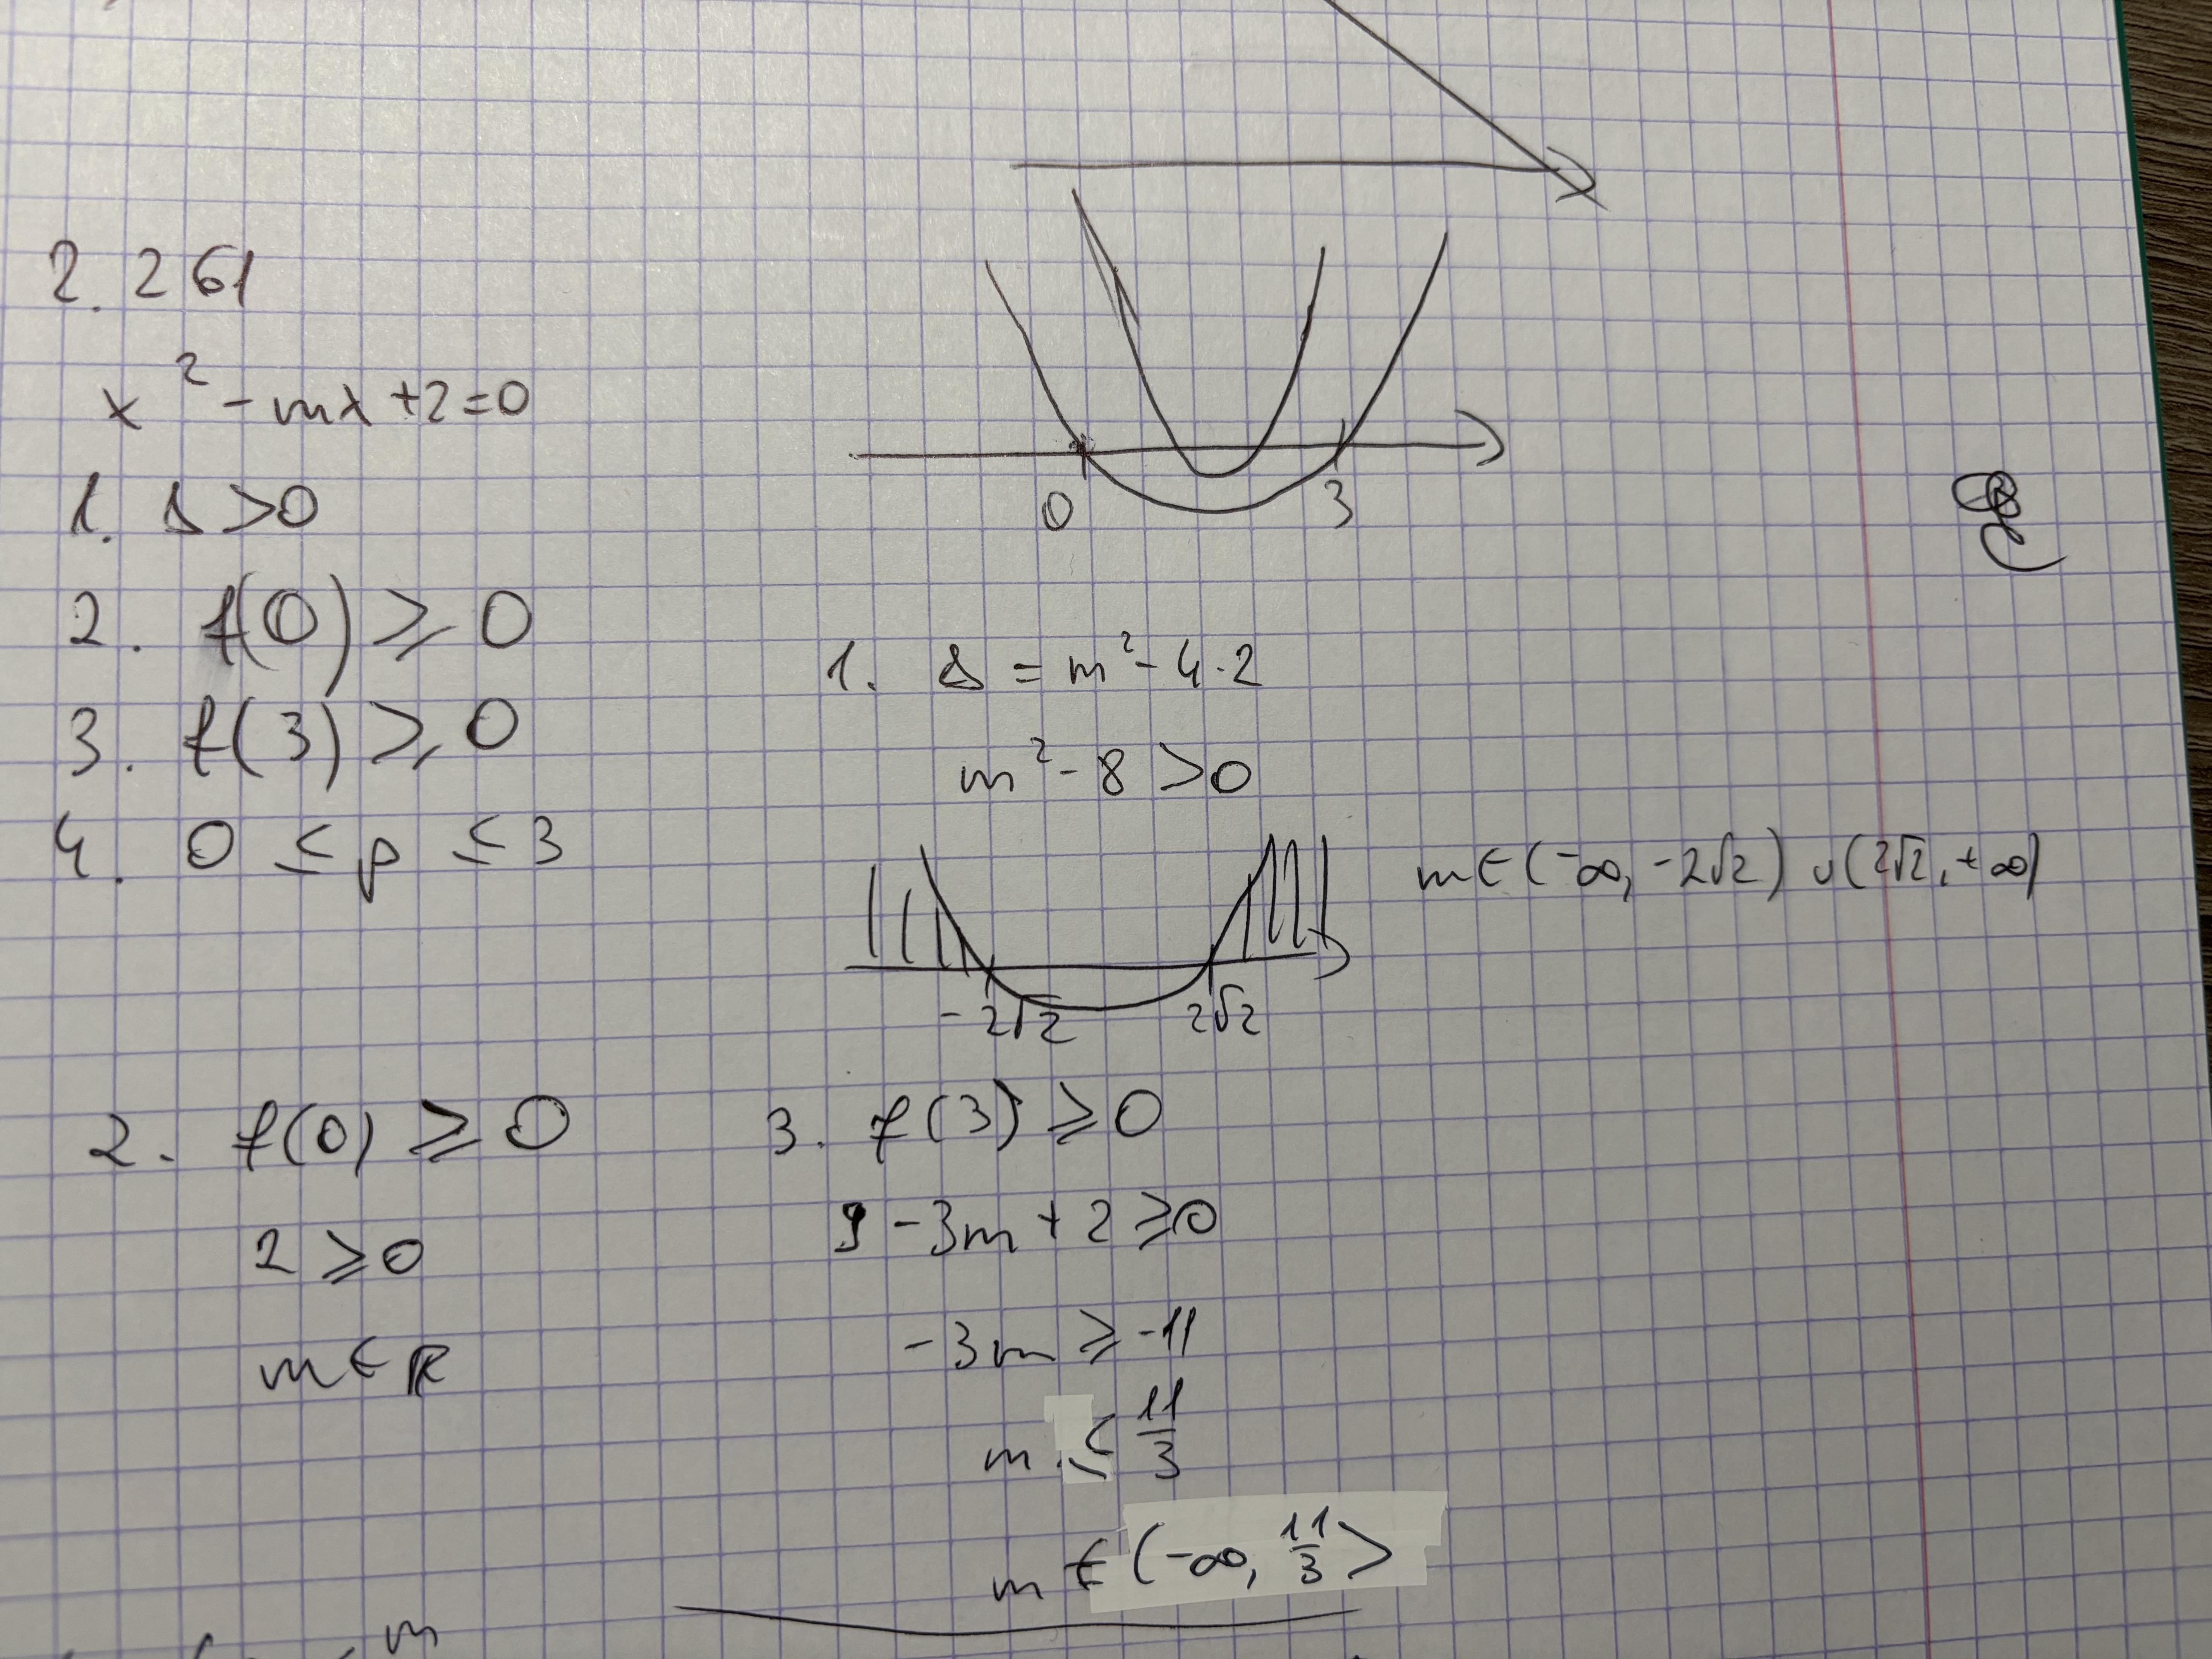 2. 261
x² - mx + 2 = 0
1. Δ > 0
2. f(0) ⩾ 0
3. f(3) ⩾ 0
4. 0 ≤ p ≤ 3
0 3
1. Δ = m² - 4·2
m² - 8 > 0
m ∈ (-∞, -2√2) ∪ (2√2, +∞)
-2√2 2√2
2. f(0) ⩾ 0
2 ⩾ 0
m ∈ R
3. f(3) ⩾ 0
9 - 3m + 2 ⩾ 0
-3m ⩾ -11
m ≤ 11/3
m ∈ (-∞, 11/3>
m